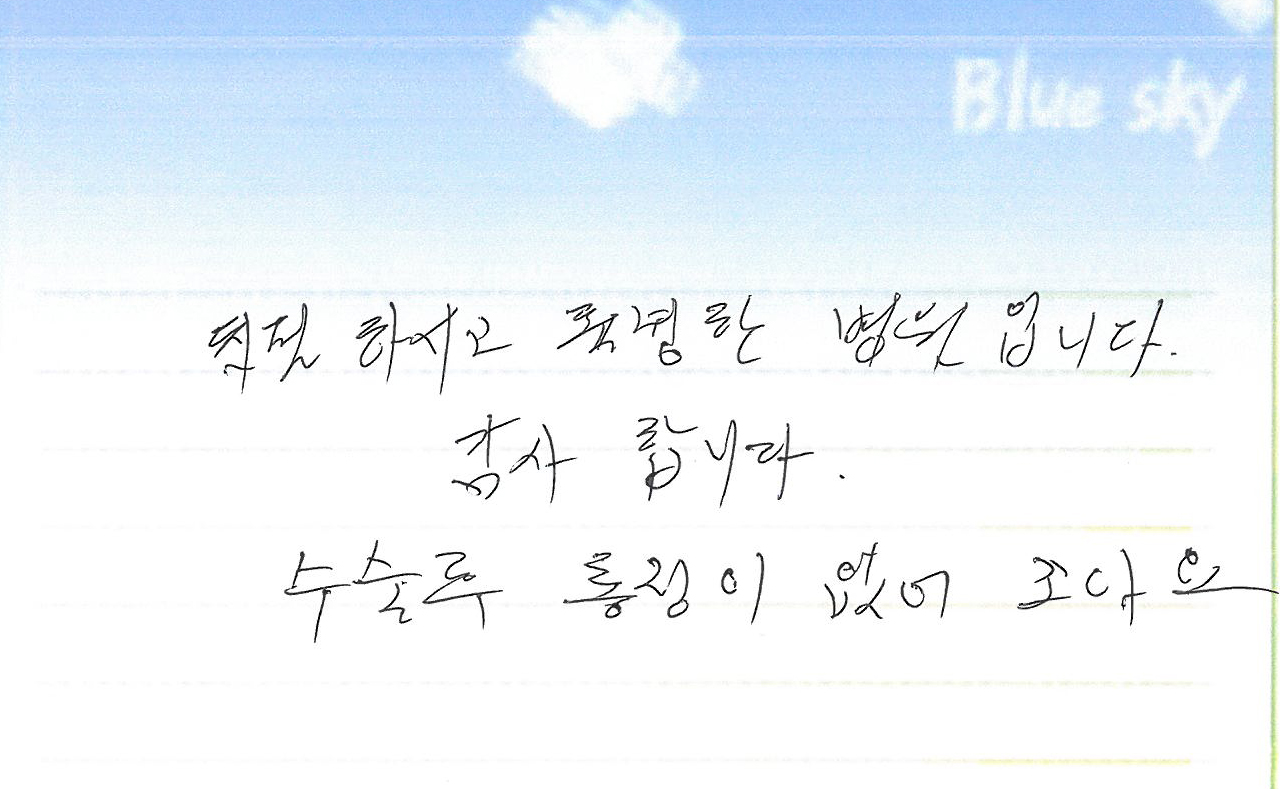 Blue sky
친절 하시고 특별한 병원 입니다.
감사 합니다.
수술후 통정이 없어 조아요